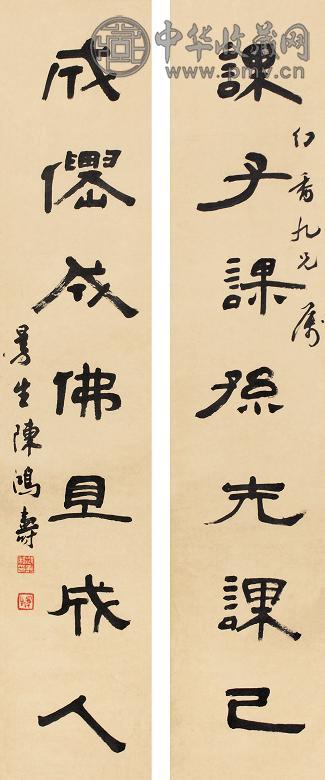 中华收藏网
www.pmv.cn
課子課孫先課己
香九兄屬
成僊成佛且成人
曼生陳鴻壽